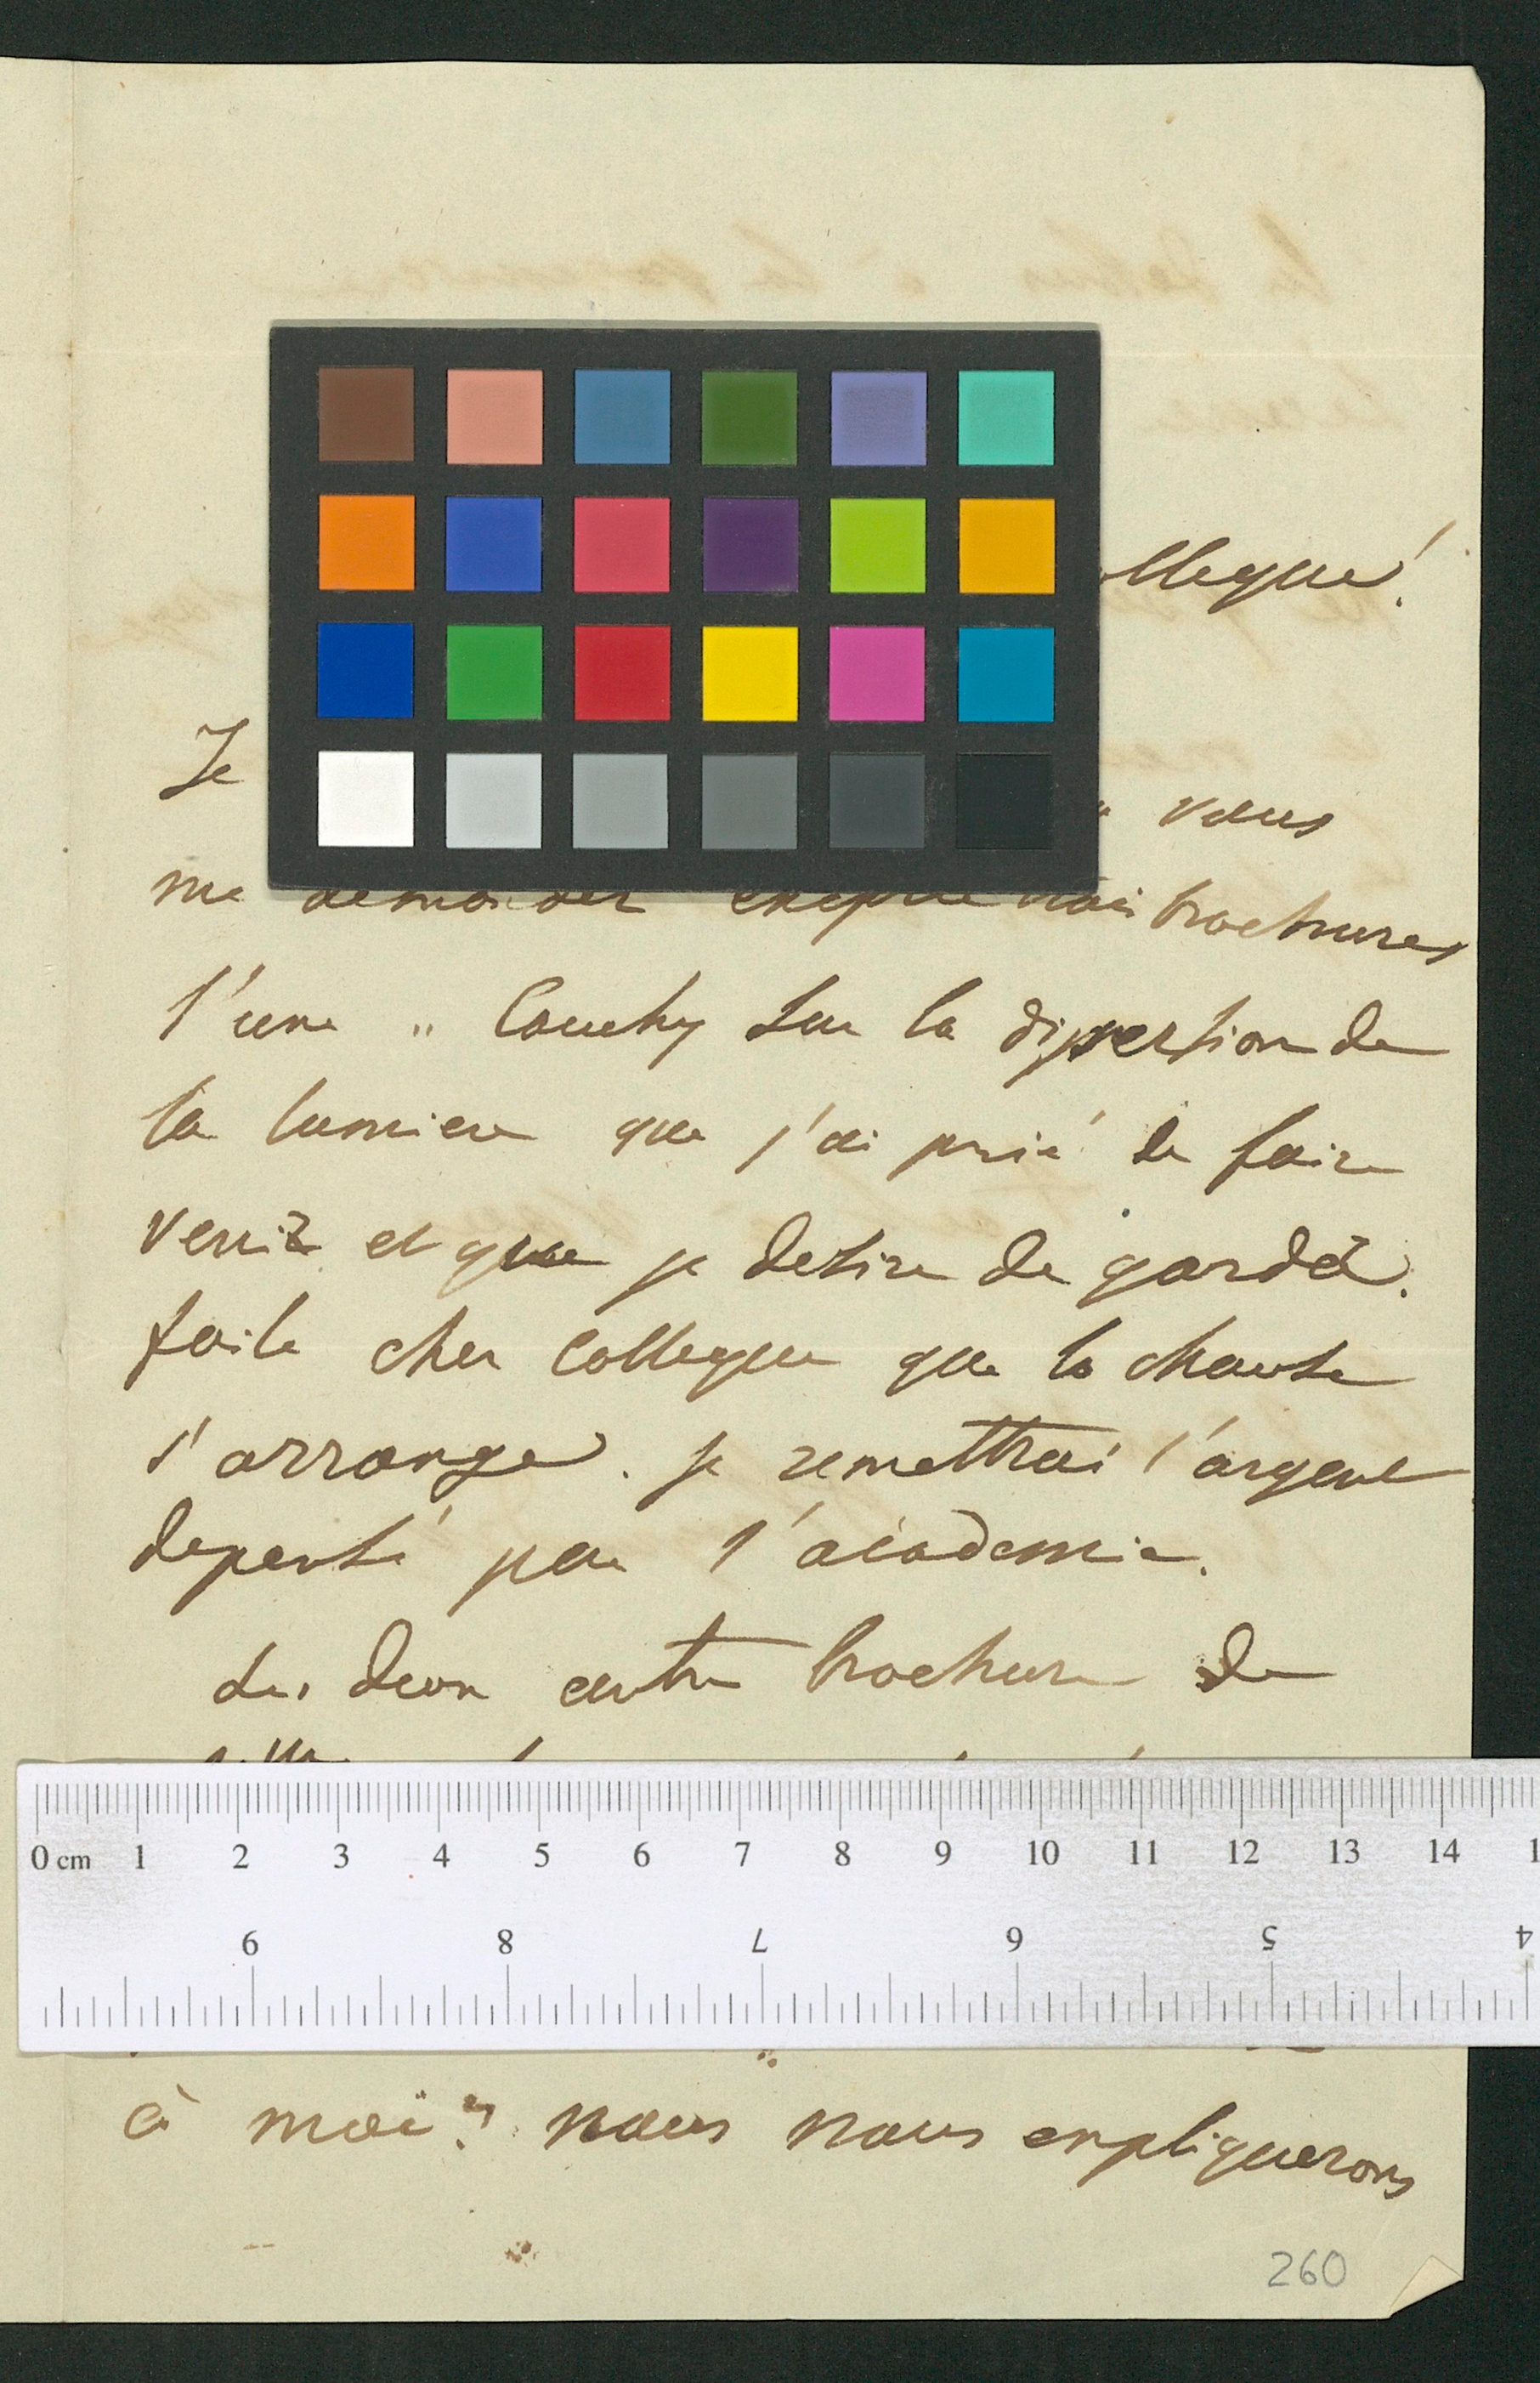 llegue!
Je vous
me demander brochures
l'une „ Cauchy sur la dispersion de
la lumiere que j'ai prié de faire
venir et que je desire de garder.
faite cher Collegue que la chause
s'arrange. je remettrai l'argent
depensé par l'academie.
Les deux autre brochure de
0 cm 1 2 3 4 5 6 7 8 9 10 11 12 13 14 1
9 8 7 6 5 4
à moi? nous nous expliquerons
260